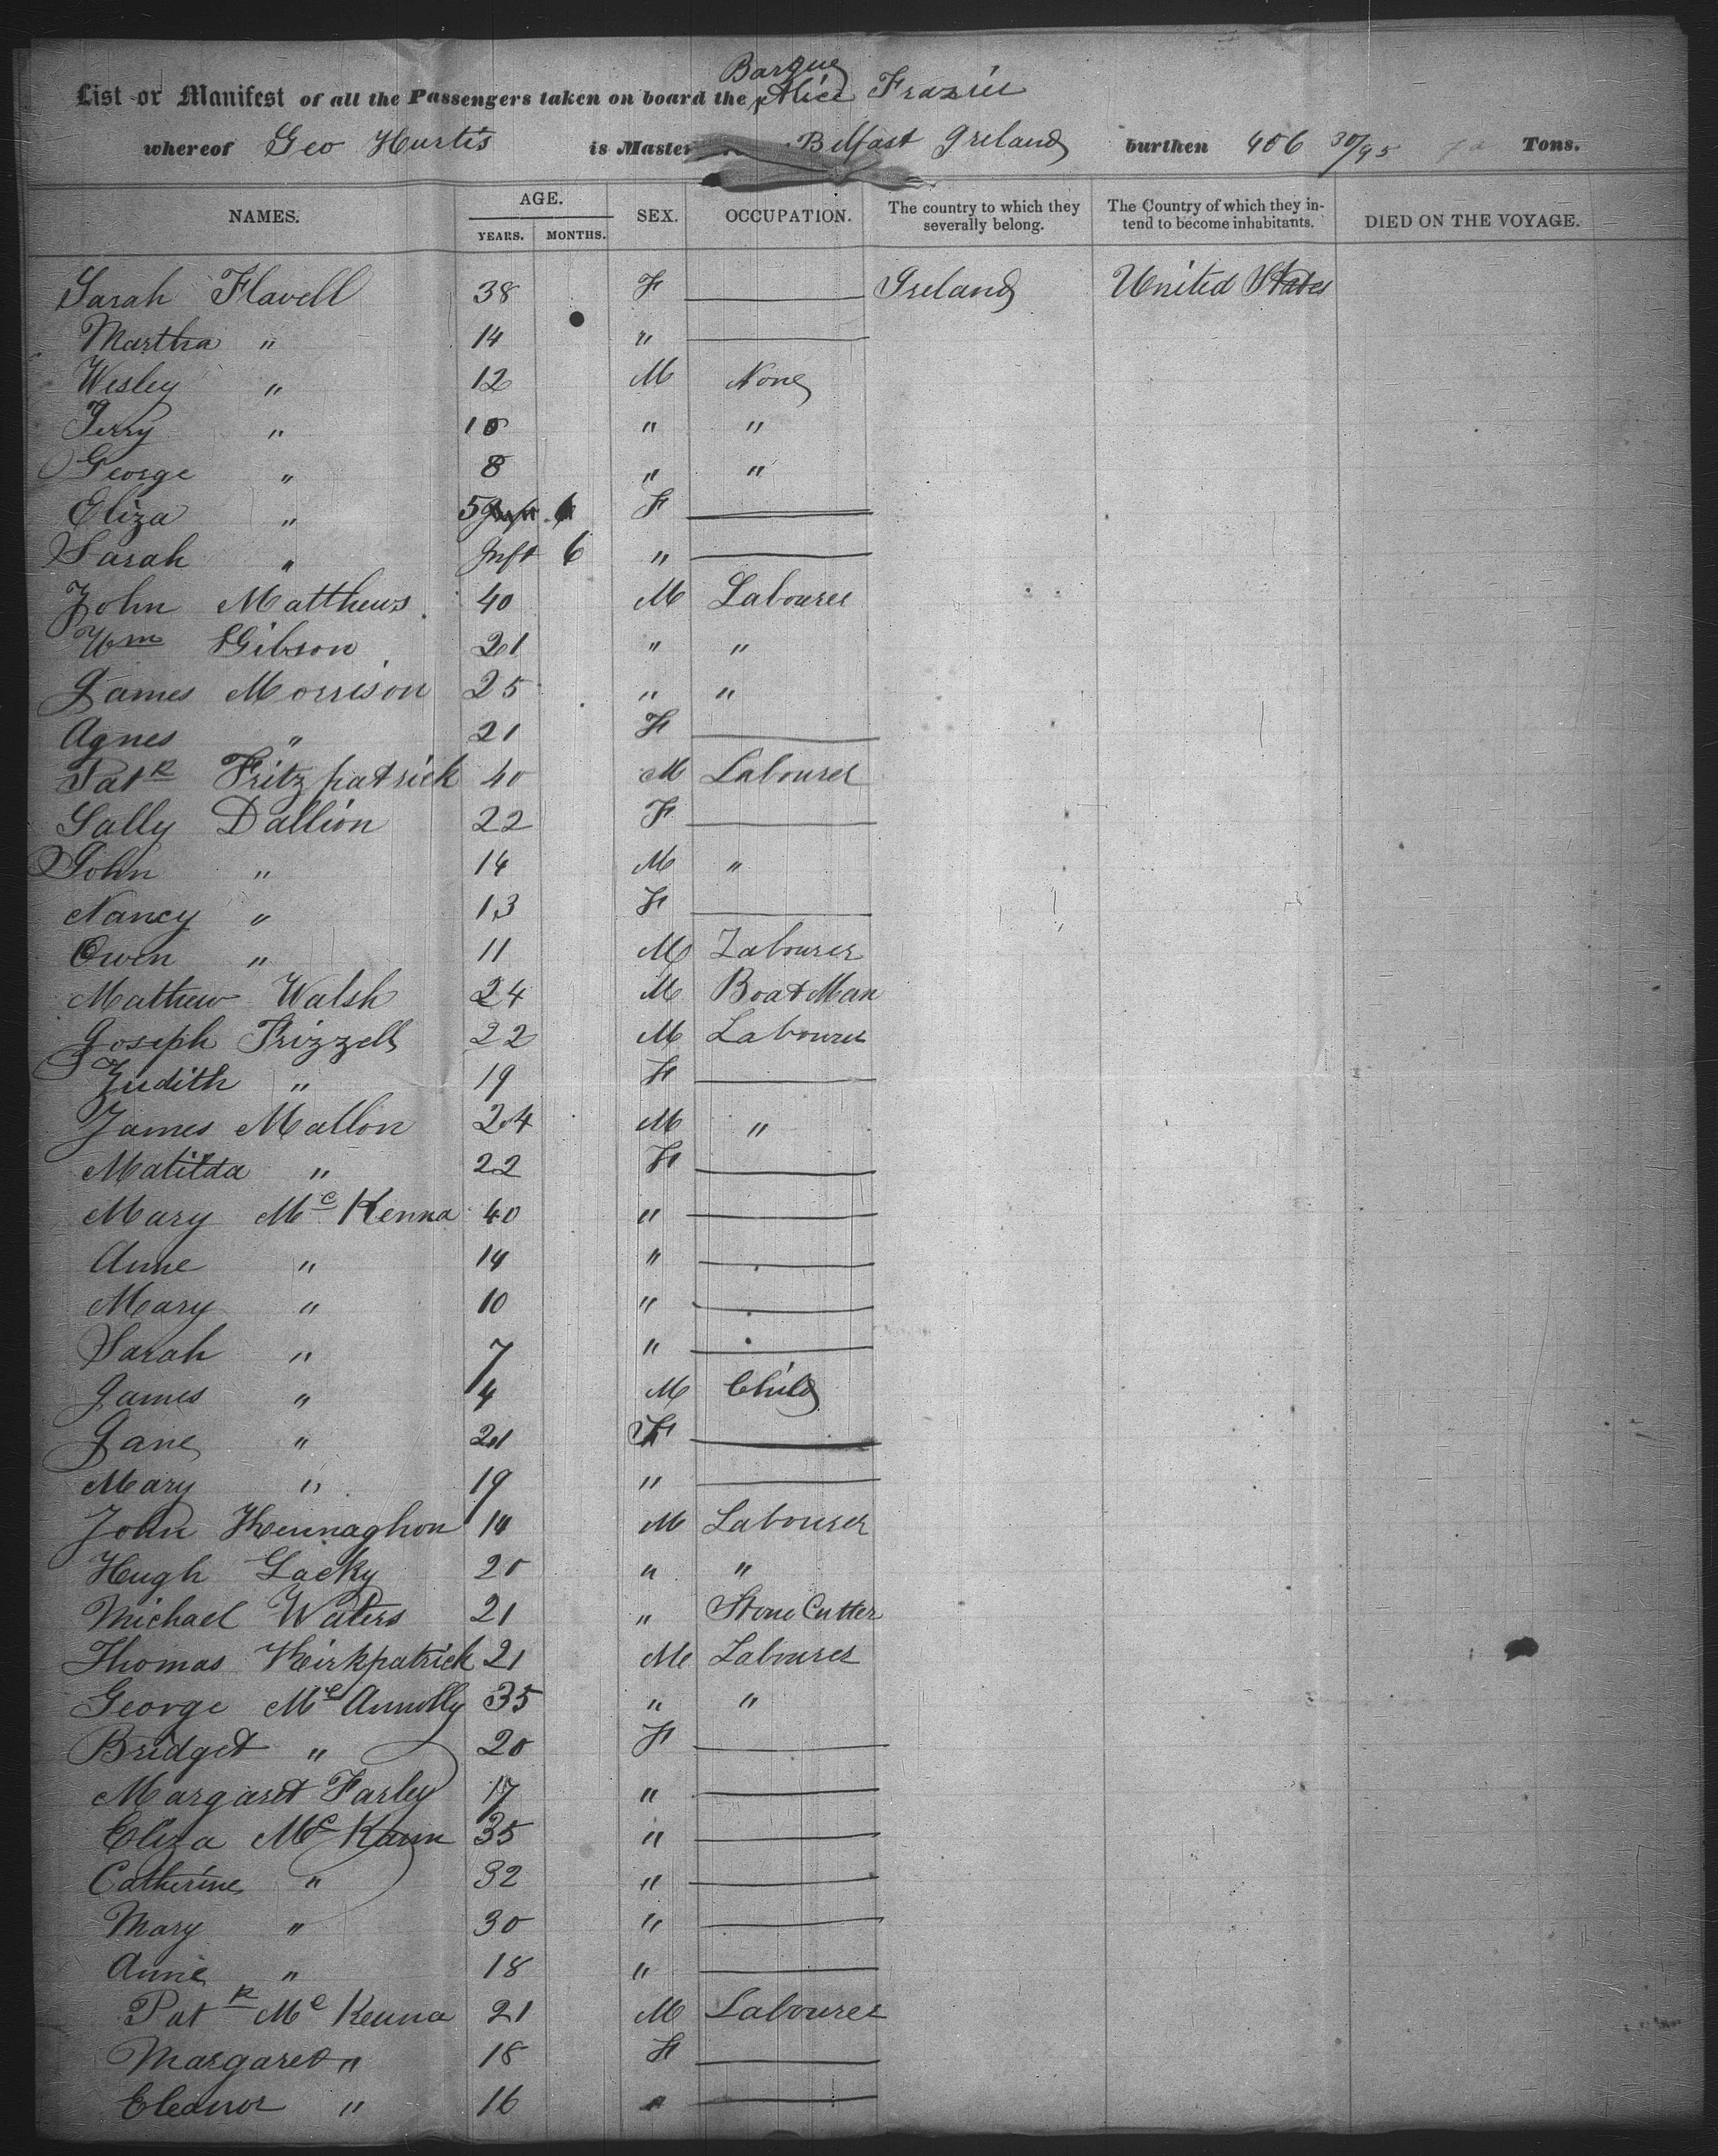 List or Manifest of all the Passengers taken on board the Barque Alice Frazier
whereof Geo Hurtis is Master Belfast Ireland burthen 406 30/95 Tons.
NAMES. AGE. YEARS. MONTHS. SEX. OCCUPATION. The country to which they severally belong. The Country of which they intend to become inhabitants. DIED ON THE VOYAGE.
Sarah Flavell 38 F — Ireland United States
Martha " 14 " —
Wesley " 12 M None
Jerry " 10 " "
George " 8 " "
Eliza " 5 F —
Sarah " Inft 6 " —
John Matthews 40 M Labourer
Wm Gibson 21 " "
James Morrison 25 " "
Agnes " 21 F —
Patk Fritzpatrick 40 M Labourer
Sally Dallion 22 F —
John " 14 M "
Nancy " 13 F —
Owen " 11 M Labourer
Mathew Walsh 24 M Boat Man
Joseph Frizzell 22 M Labourer
Judith " 19 F —
James Mallon 24 M "
Matilda " 22 F —
Mary McKenna 40 " —
Anne " 14 " —
Mary " 10 " —
Sarah " 7 " —
James " 4 M Child
Jane " 21 F —
Mary " 19 " —
John Kennaghon 14 M Labourer
Hugh Lacky 20 " "
Michael Waters 21 " Stone Cutter
Thomas Kirkpatrick 21 M Labourer
George McAnnolly 35 " "
Bridget " 20 F —
Margaret Farley 17 " —
Eliza McKann 35 " —
Catherine " 32 " —
Mary " 30 " —
Anne " 18 " —
Patk McKenna 21 M Labourer
Margaret " 18 F —
Eleanor " 16 " —